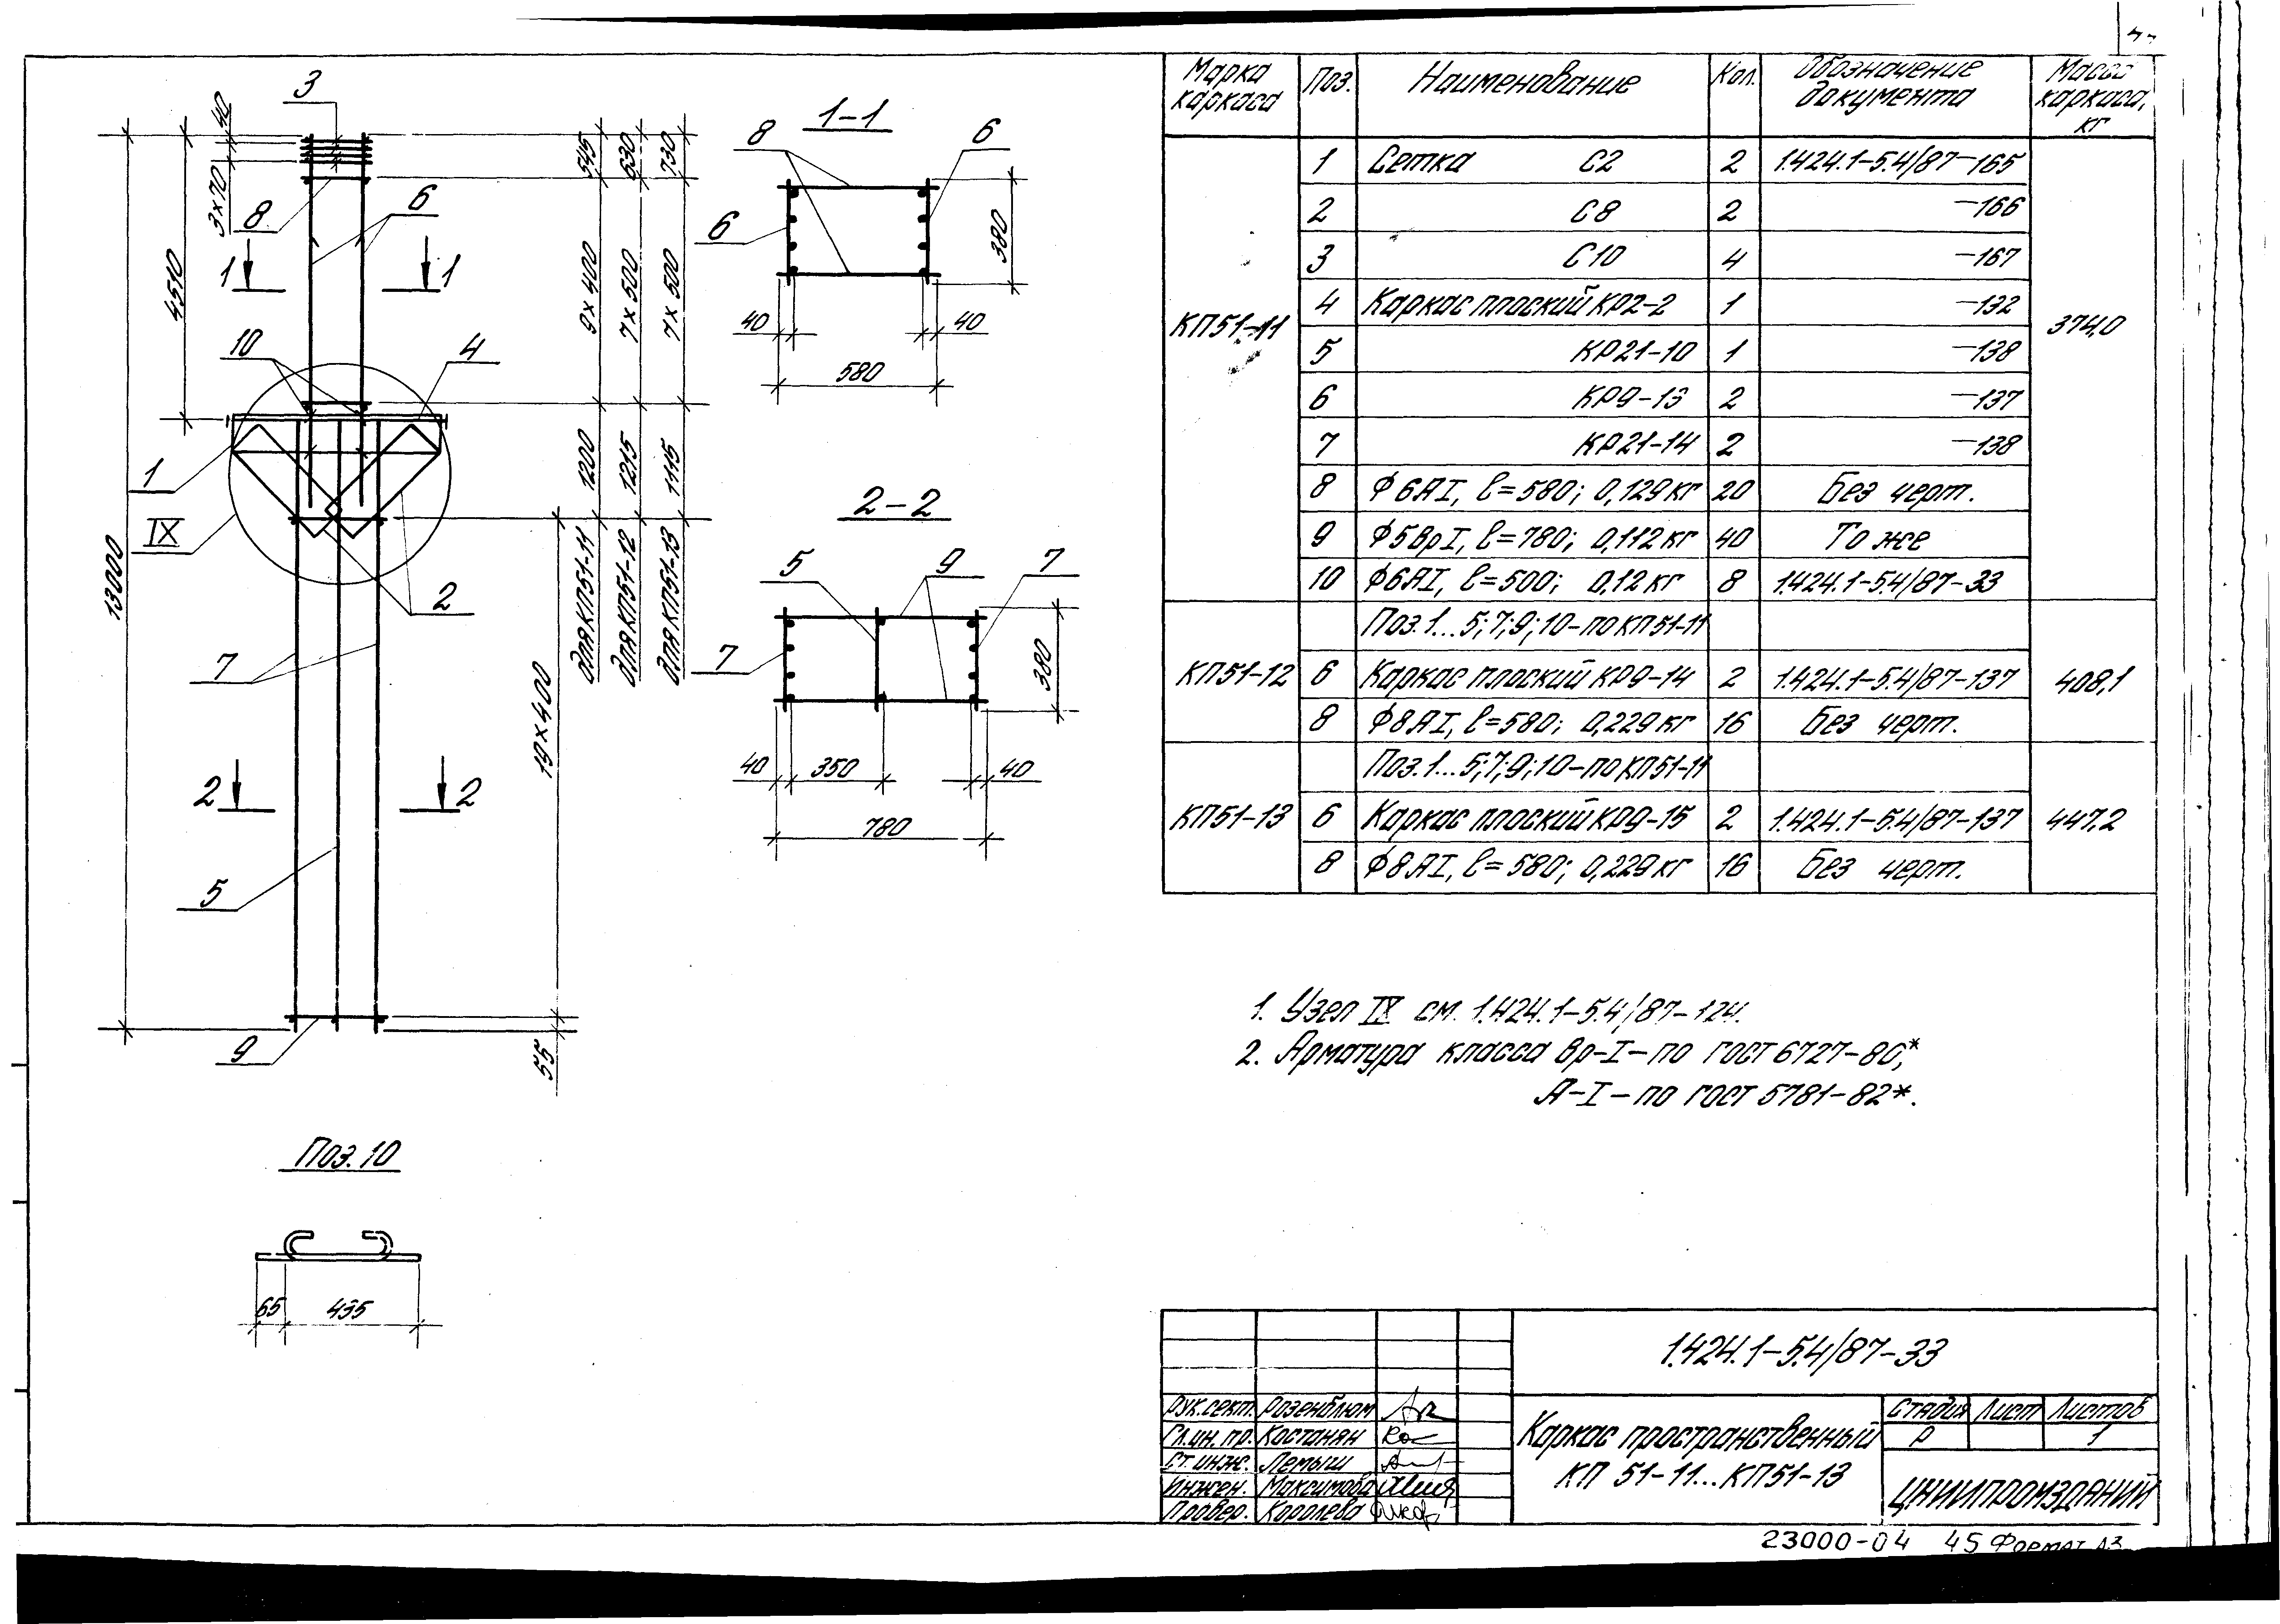 3
40
3×70
8
6
4510
1 1
10
4
1
IX
2
13000
7
2 2
5
9
55
19×400
545 630 730
9×400 7×500 7×500
1200 1215 1115
для КП51-11
для КП51-12
для КП51-13
1-1
8
6
6
380
40 40
580
2-2
5
9
7
7
380
40 350 40
780
Поз. 10
65 435
Марка каркаса Поз. Наименование Кол. Обозначение документа Масса каркаса, кг
КП51-11 374,0
1 Сетка С2 2 1.424.1-5.4/87-165
2 С8 2 -166
3 С10 4 -167
4 Каркас плоский КР2-2 1 -132
5 КР21-10 1 -138
6 КР9-13 2 -137
7 КР21-14 2 -138
8 Ф6АI, ℓ=580; 0,129кг 20 Без черт.
9 Ф5ВрI, ℓ=780; 0,112кг 40 То же
10 Ф6АI, ℓ=500; 0,12кг 8 1.424.1-5.4/87-33
Поз. 1...5;7;9;10-по КП51-11
КП51-12 6 Каркас плоский КР9-14 2 1.424.1-5.4/87-137 408,1
8 Ф8АI, ℓ=580; 0,229кг 16 Без черт.
Поз. 1...5;7;9;10-по КП51-11
КП51-13 6 Каркас плоский КР9-15 2 1.424.1-5.4/87-137 447,2
8 Ф8АI, ℓ=580; 0,229кг 16 Без черт.
1. Узел IX см. 1.424.1-5.4/87-124.
2. Арматура класса Вр-I-по ГОСТ 6727-80,*
А-I-по ГОСТ 5781-82*.
1.424.1-5.4/87-33
Рук.сект. Розенблюм
Гл.ин.пр. Костанян
Ст.инж. Лемыш
Инжен. Максимова
Провер. Королева
Каркас пространственный
КП 51-11...КП51-13
Стадия Лист Листов
Р 1
ЦНИИПРОМЗДАНИЙ
23000-04 45 Формат А3